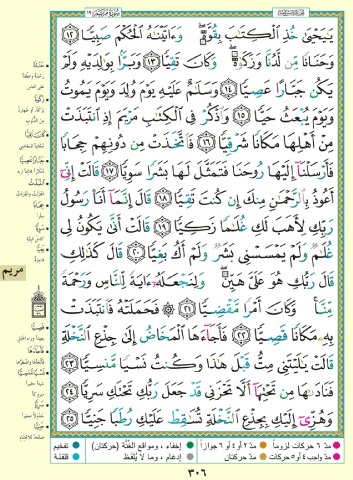 يَٰيَحْيَىٰ خُذِ ٱلْكِتَٰبَ بِقُوَّةٍۖ وَءَاتَيْنَٰهُ ٱلْحُكْمَ صَبِيًّا ١٢
وَحَنَانًا مِّن لَّدُنَّا وَزَكَوٰةًۖ وَكَانَ تَقِيًّا ١٣ وَبَرًّۢا بِوَٰلِدَيْهِ وَلَمْ
يَكُن جَبَّارًا عَصِيًّا ١٤ وَسَلَٰمٌ عَلَيْهِ يَوْمَ وُلِدَ وَيَوْمَ يَمُوتُ
وَيَوْمَ يُبْعَثُ حَيًّا ١٥ وَٱذْكُرْ فِي ٱلْكِتَٰبِ مَرْيَمَ إِذِ ٱنتَبَذَتْ
مِنْ أَهْلِهَا مَكَانًا شَرْقِيًّا ١٦ فَٱتَّخَذَتْ مِن دُونِهِمْ حِجَابًا
فَأَرْسَلْنَآ إِلَيْهَا رُوحَنَا فَتَمَثَّلَ لَهَا بَشَرًا سَوِيًّا ١٧ قَالَتْ إِنِّيٓ
أَعُوذُ بِٱلرَّحْمَٰنِ مِنكَ إِن كُنتَ تَقِيًّا ١٨ قَالَ إِنَّمَآ أَنَا۠ رَسُولُ
رَبِّكِ لِأَهَبَ لَكِ غُلَٰمًا زَكِيًّا ١٩ قَالَتْ أَنَّىٰ يَكُونُ لِي
غُلَٰمٌ وَلَمْ يَمْسَسْنِي بَشَرٌ وَلَمْ أَكُ بَغِيًّا ٢٠ قَالَ كَذَٰلِكِ
قَالَ رَبُّكِ هُوَ عَلَيَّ هَيِّنٌۖ وَلِنَجْعَلَهُۥٓ ءَايَةً لِّلنَّاسِ وَرَحْمَةً
مِّنَّاۚ وَكَانَ أَمْرًا مَّقْضِيًّا ٢١ ۞ فَحَمَلَتْهُ فَٱنتَبَذَتْ
بِهِۦ مَكَانًا قَصِيًّا ٢٢ فَأَجَآءَهَا ٱلْمَخَاضُ إِلَىٰ جِذْعِ ٱلنَّخْلَةِ
قَالَتْ يَٰلَيْتَنِي مِتُّ قَبْلَ هَٰذَا وَكُنتُ نَسْيًا مَّنسِيًّا ٢٣
فَنَادَىٰهَا مِن تَحْتِهَآ أَلَّا تَحْزَنِي قَدْ جَعَلَ رَبُّكِ تَحْتَكِ سَرِيًّا ٢٤
وَهُزِّيٓ إِلَيْكِ بِجِذْعِ ٱلنَّخْلَةِ تُسَٰقِطْ عَلَيْكِ رُطَبًا جَنِيًّا ٢٥
مريم
مدّ ٦ حركات لزوماً مدّ ٢ أو ٤ أو ٦ جوازاً إخفاء، ومواقع الغنّة (حركتان) تفخيم
مدّ واجب ٤ أو ٥ حركات مدّ حركتان إدغام، وما لا يُلفظ قلقلة
٣٠٦